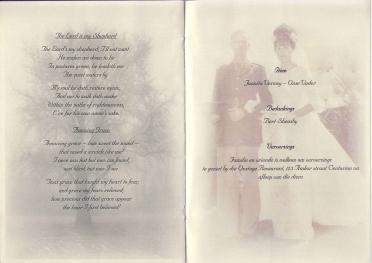 The Lord is my Shepherd
The Lord's my shepherd, I'll not want
He makes me down to lie
In pastures green, he leadeth me
The quiet waters by
My soul he doth restore again,
And me to walk doth make
Within the paths of righteousness,
E'en for his own name's sake.
Amazing Grace
Amazing grace – how sweet the sound –
that saved a wretch like me!
I once was lost but now am found,
was blind, but now I see
'Twas grace that taught my heart to fear,
and grace my fears relieved;
how precious did that grace appear
the hour I first believed!
Item
– Onse Vader
Bedankings
Bert
Verversings
Familie en vriende is welkom om verversings
te geniet by die Restaurant, straat Centurion na
afloop van die diens